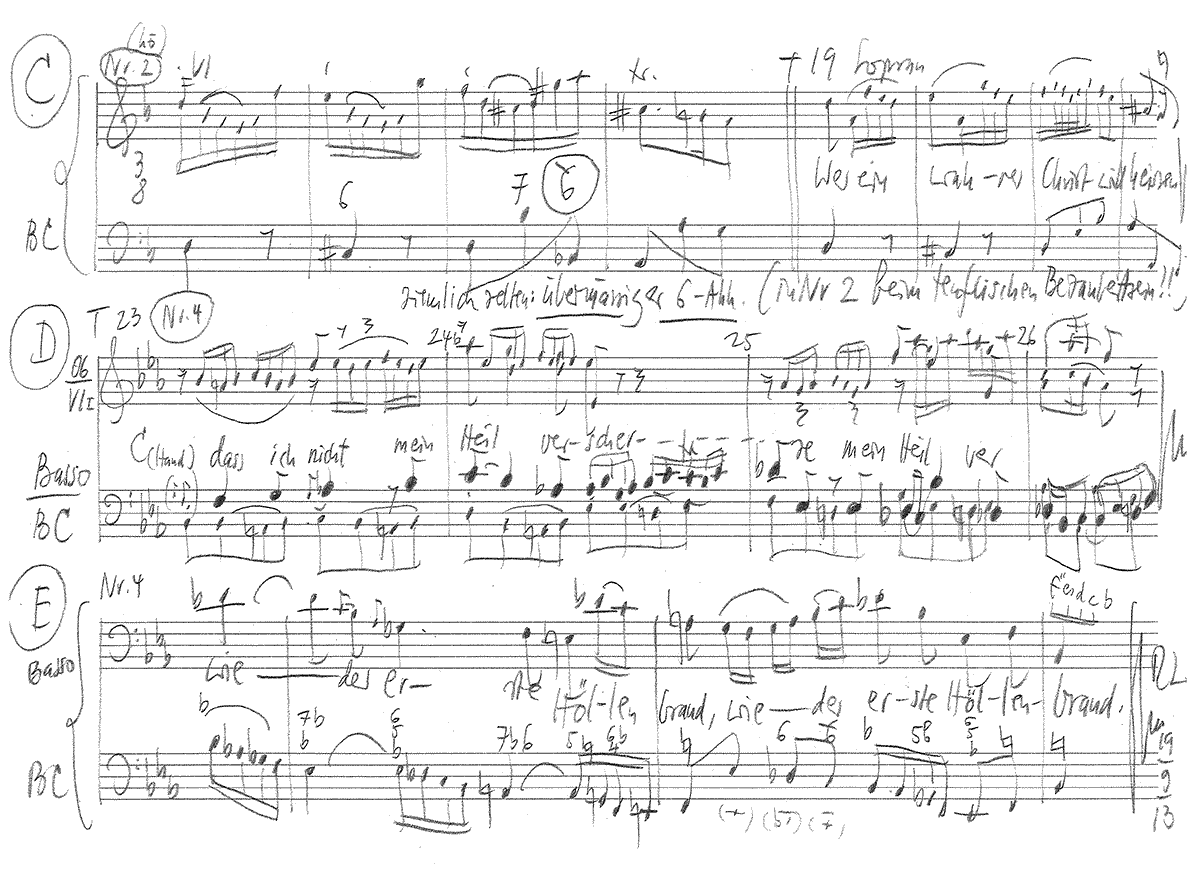 C Nr. 2 VI tr. + 19 Sopran
3 8
Wer ein wah-rer Christ will heissen
6 7 6
BC
ziemlich selten: übermässiger 6-Akk. (in Nr 2 beim teuflischen
D T 23 Nr. 4 24 25 26
Ob
VI I
C (Hand) dass ich nicht mein Heil ver-scher- - - - ze mein Heil ver
Basso
BC
E Nr. 4
Basso
Wie — der er- ste Höl-len brand, wie — der er-ste Höl-len- brand.
7b 6 5 7b6 5 6 6 5b
BC
RL
19
9
13